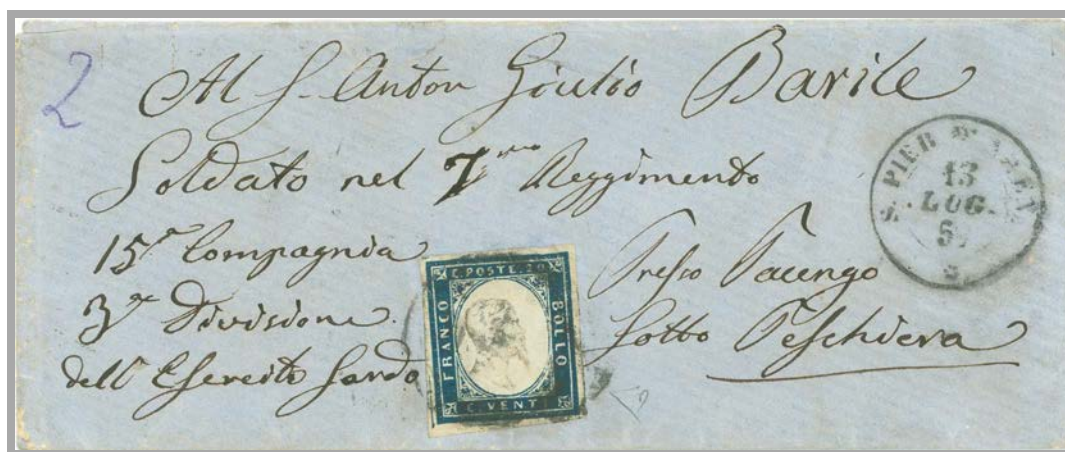 2
Al S. Anton Giulio Barile
Soldato nel 7mo Reggimento
15a Compagnia
3a Divisione
dell'Esercito Sardo
Presso Pacengo
Sotto Peschiera
S. PIER D'ARENA
13
LUG.
C. POSTE. 20
FRANCO
BOLLO
C. VENTI